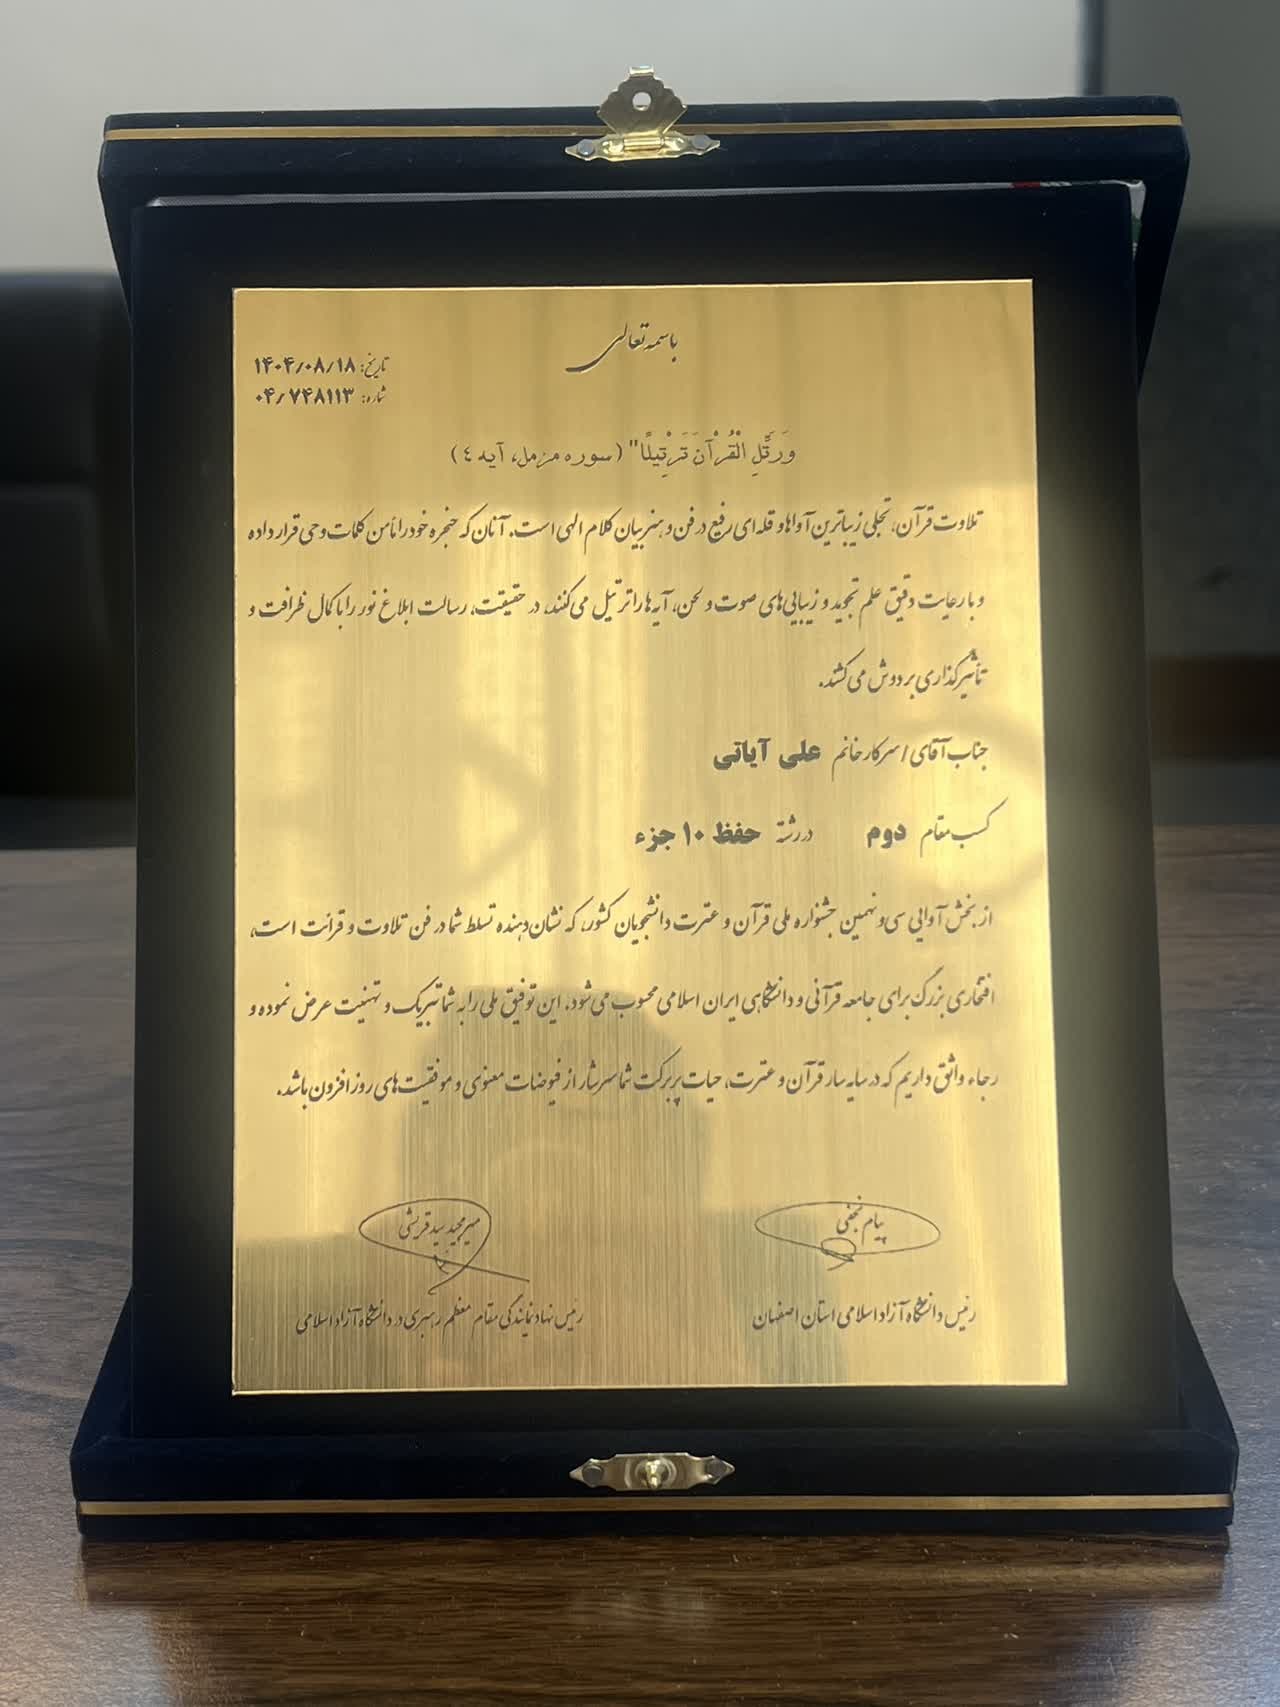 باسمه تعالی
تاریخ: ۱۴۰۴/۰۸/۱۸
شماره: ۰۴/۷۴۸۱۱۳
وَرَتِّلِ الْقُرْآنَ تَرْتِيلًا" (سوره مزمل، آیه ٤)
تلاوت قرآن، تجلی زیباترین آواها و قله‌ای رفیع در فن و هنر بیان کلام الهی است. آنان که حنجره خود را مأمن کلمات وحی قرار داده
و با رعایت دقیق علم تجوید و زیبایی‌های صوت و لحن، آیه‌ها را ترتیل می‌کنند، در حقیقت، رسالت ابلاغ نور را با کمال ظرافت و
تأثیرگذاری بر دوش می‌کشند.
جناب آقای / سرکار خانم علی آیاتی
کسب مقام دوم در رشته حفظ ۱۰ جزء
از بخش آوایی سی و نهمین جشنواره ملی قرآن و عترت دانشجویان کشور، که نشان‌دهنده تسلط شما در فن تلاوت و قرائت است،
افتخاری بزرگ برای جامعه قرآنی و دانشگاهی ایران اسلامی محسوب می‌شود. این توفیق ملی را به شما تبریک و تهنیت عرض نموده و
رجاء واثق داریم که در سایه سار قرآن و عترت، حیات پربرکت شما سرشار از فیوضات معنوی و موفقیت‌های روزافزون باشد.
پیام نجفی
رئیس دانشگاه آزاد اسلامی استان اصفهان
میر مجید سید قریشی
رئیس نهاد نمایندگی مقام معظم رهبری در دانشگاه آزاد اسلامی